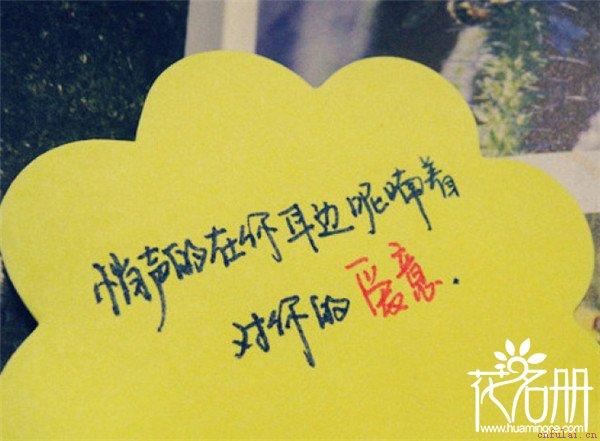 悄声的在你耳边呢喃着
对你的爱意.
花名册
www.huamingce.com
cnfulai.cn